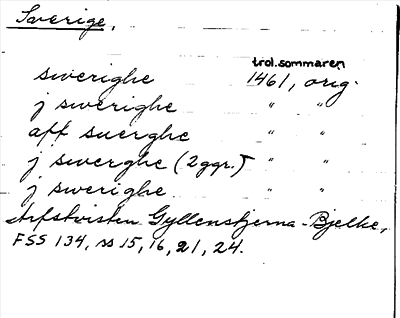 Sverige.
trol. sommaren
swerighe 1461, orig.
j swerighe " "
aff suerghe " "
j swerghe (2 ggr.) " "
j swerighe " "
Arfstvisten Gyllenstjerna-Bjelke,
FSS 134, ss 15, 16, 21, 24.